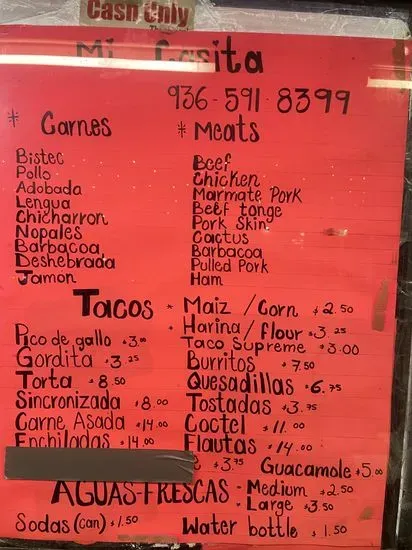 Cash Only
Mi Casita
936-591-8399
* Carnes * Meats
Bistec Beef
Pollo Chicken
Adobada Marmate Pork
Lengua Beef tonge
Chicharron Pork Skin
Nopales Cactus
Barbacoa Barbacoa
Deshebrada Pulled Pork
Jamon Ham
Tacos * Maiz / Corn $2.50
* Harina / flour $3.25
Pico de gallo $3.00 Taco Supreme $3.00
Gordita $3.25 Burritos $7.50
Torta $8.50 Quesadillas $6.75
Sincronizada $8.00 Tostadas $3.75
Carne Asada $14.00 Coctel $11.00
Enchiladas $14.00 Flautas $14.00
$3.75 Guacamole $5.00
AGUAS-FRESCAS - Medium $2.50
- Large $3.50
Sodas (can) $1.50 Water bottle $1.50